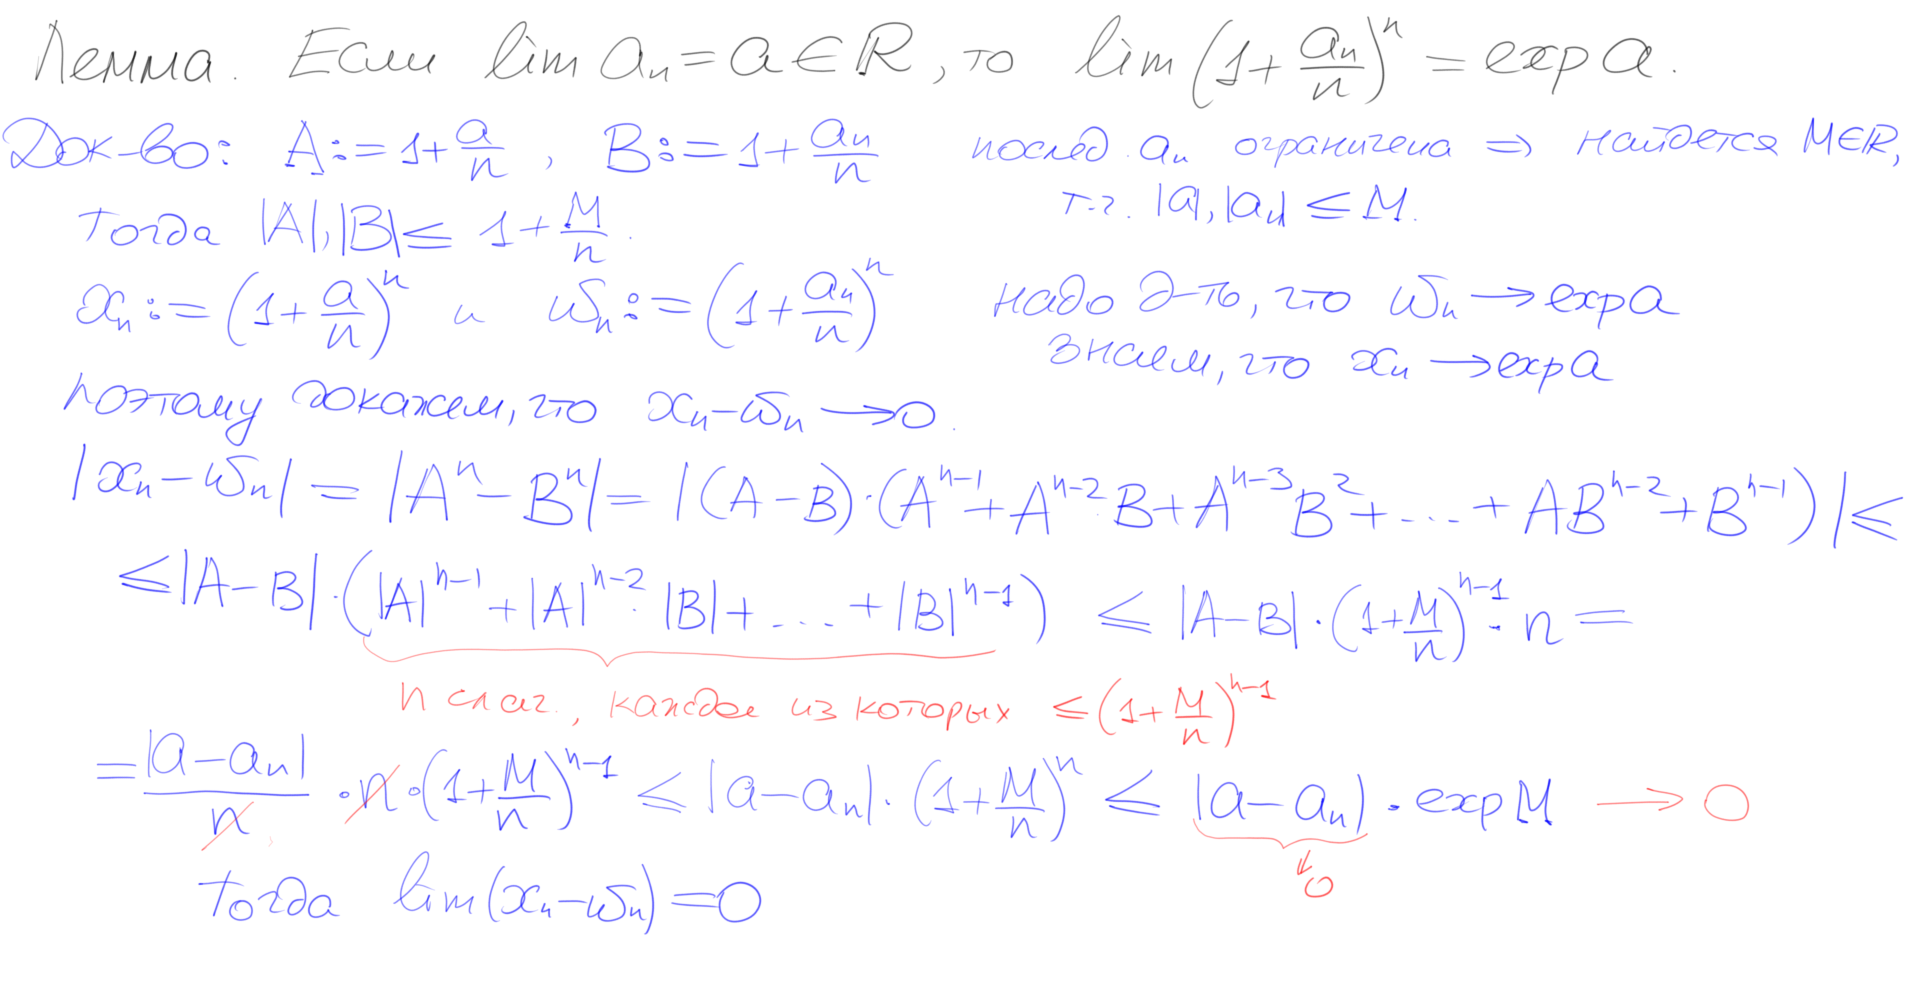 Лемма. Если lim aₙ = a ∈ ℝ, то lim (1 + aₙ/n)ⁿ = exp a.
Док-во: A := 1 + a/n , B := 1 + aₙ/n
послед. aₙ ограничена ⇒ найдется M ∈ ℝ,
т.ч. |a|, |aₙ| ≤ M.
Тогда |A|, |B| ≤ 1 + M/n.
xₙ := (1 + a/n)ⁿ и wₙ := (1 + aₙ/n)ⁿ
надо д-ть, что wₙ → exp a
знаем, что xₙ → exp a
поэтому докажем, что xₙ - wₙ → 0.
|xₙ - wₙ| = |Aⁿ - Bⁿ| = |(A - B)·(Aⁿ⁻¹ + Aⁿ⁻²B + Aⁿ⁻³B² + ... + ABⁿ⁻² + Bⁿ⁻¹)| ≤
≤ |A - B|·(|A|ⁿ⁻¹ + |A|ⁿ⁻²·|B| + ... + |B|ⁿ⁻¹) ≤ |A - B|·(1 + M/n)ⁿ⁻¹·n =
n слаг., каждое из которых ≤ (1 + M/n)ⁿ⁻¹
= |a - aₙ|/n · n·(1 + M/n)ⁿ⁻¹ ≤ |a - aₙ|·(1 + M/n)ⁿ ≤ |a - aₙ|·exp M → 0
↓
0
Тогда lim(xₙ - wₙ) = 0